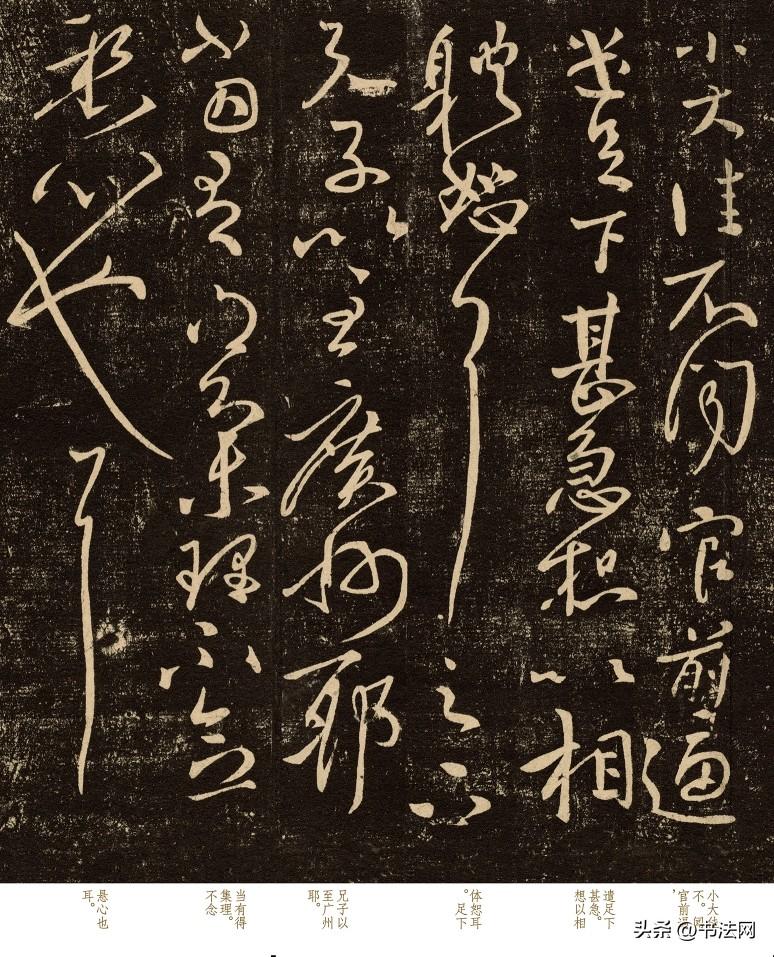 小大佳不闻官前逼
遣足下甚急想以相
体恕耳足下
兄子以至广州耶
当有得集理不念
悬心也耳
小大佳
不。闻
官前逼
，
遣足下
甚急。
想以相
体恕耳
。足下
兄子以
至广州
耶。
当有得
集理。
不念
悬心也
耳。
头条 @书法网